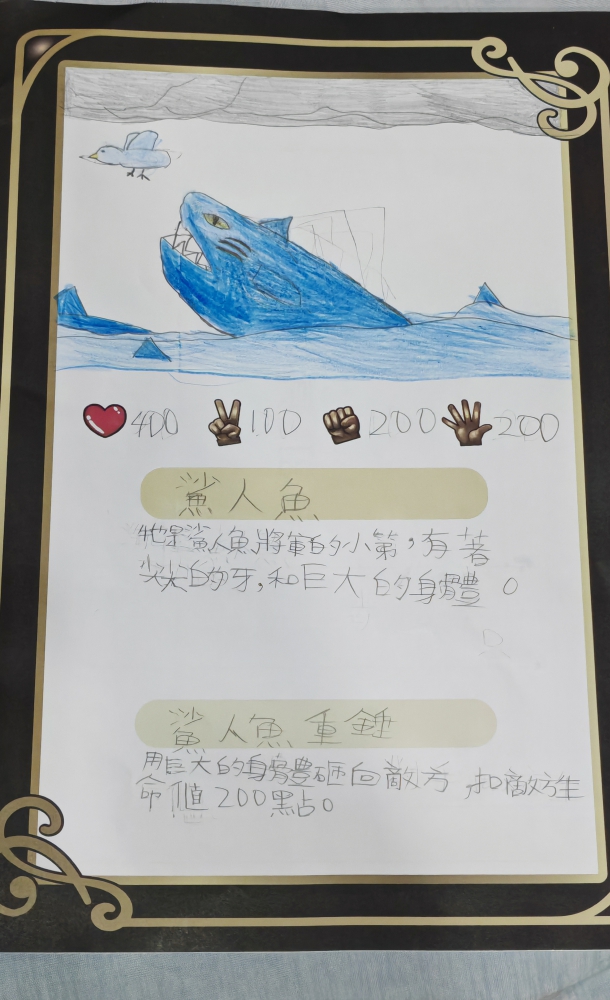 400 100 200 200
鯊人魚
牠是鯊人魚將軍的小第，有著
尖尖的牙，和巨大的身體。
鯊人魚重錘
用巨大的身體砸向敵方 扣敵方生
命值200點。